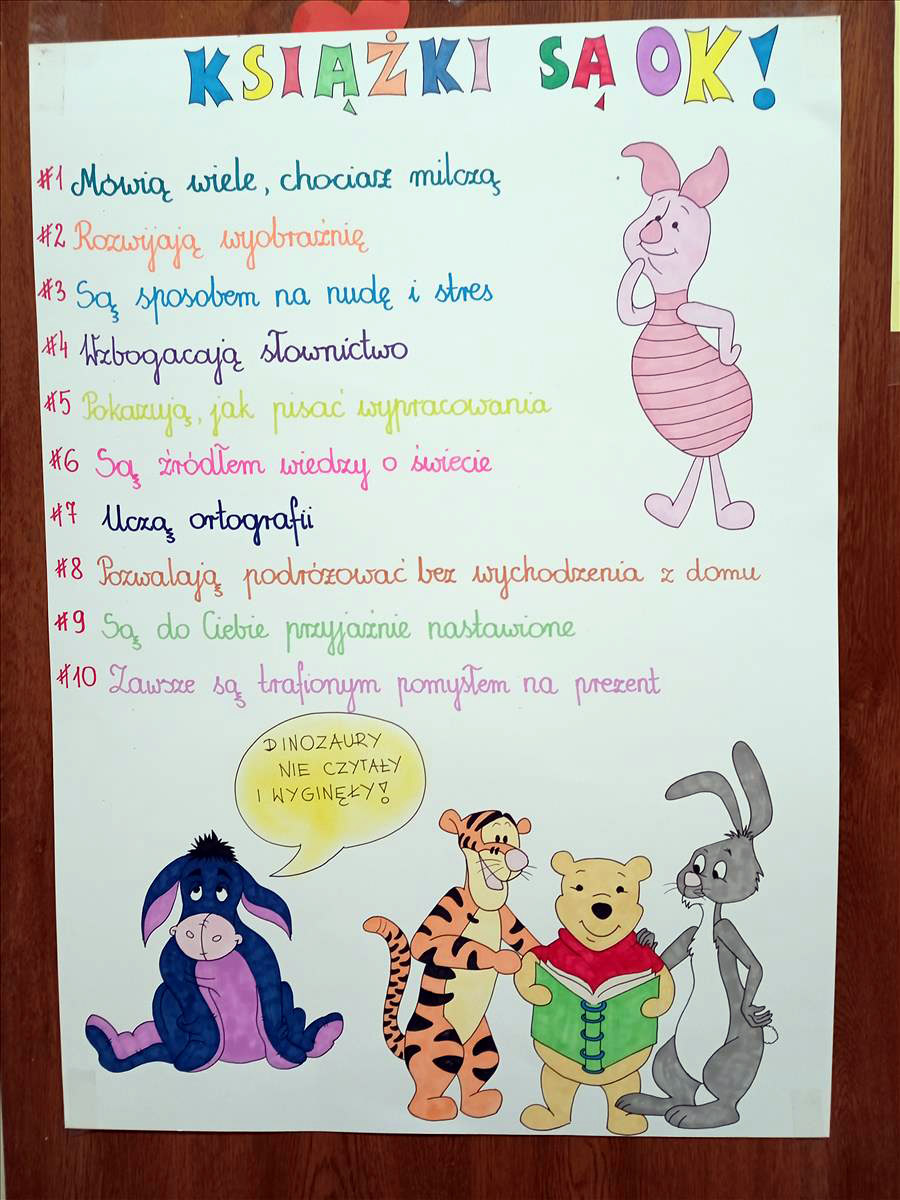 KSIĄŻKI SĄ OK!
#1 Mówią wiele, chociaż milczą
#2 Rozwijają wyobraźnię
#3 Są sposobem na nudę i stres
#4 Wzbogacają słownictwo
#5 Pokazują, jak pisać wypracowania
#6 Są źródłem wiedzy o świecie
#7 Uczą ortografii
#8 Pozwalają podróżować bez wychodzenia z domu
#9 Są do Ciebie przyjaźnie nastawione
#10 Zawsze są trafionym pomysłem na prezent
DINOZAURY
NIE CZYTAŁY
I WYGINĘŁY!